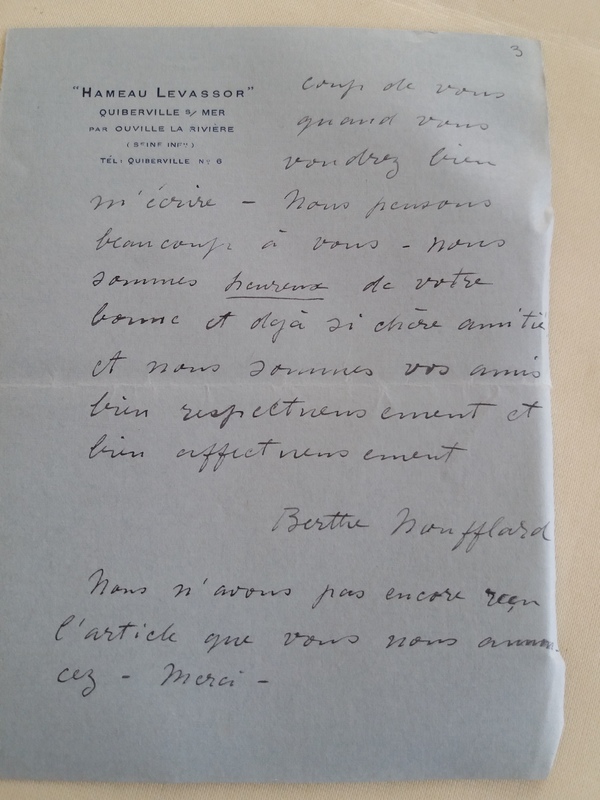 3
"HAMEAU LEVASSOR"
QUIBERVILLE S/ MER
PAR OUVILLE LA RIVIÈRE
(SEINE INFRE)
TÉL: QUIBERVILLE No 6
coup de vous
quand vous
voudrez bien
m'écrire - Nous pensons
beaucoup à vous - nous
sommes heureux de votre
bonne et déjà si chère amitié
et nous sommes vos amis
bien respectueusement et
bien affectueusement
Berthe Noufflard
Nous n'avons pas encore reçu
l'article que vous nous annon-
cez - Merci -